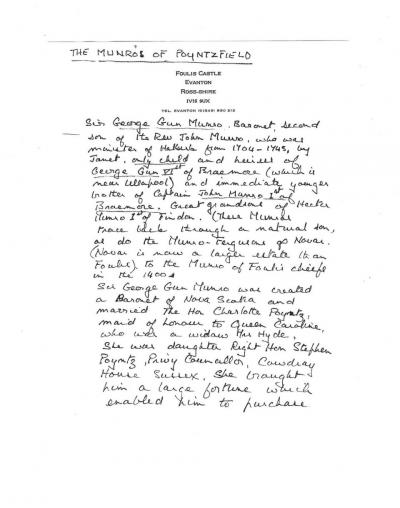 THE MUNROS OF POYNTZFIELD
FOULIS CASTLE
EVANTON
ROSS-SHIRE
IV16 9UX
TEL. EVANTON (0349) 830 212
Sir George Gun Munro, Baronet, second
son of the Rev John Munro, who was
minister of Halkirk from 1704-1743, by
Janet, only child and heiress of
George Gun VIst of Braemore (which is
near Ullapool) and immediate younger
brother of Captain John Munro 1st of
Braemore. Great grandsons of Hector
Munro 1st of Findon. (These Munros
trace back through a natural son,
as do the Munro-Fergusons of Novar.
(Novar is now a larger estate than
Foulis) to the Munro of Foulis chiefs
in the 1400s
Sir George Gun Munro was created
a Baronet of Nova Scotia and
married The Hon Charlotte Poyntz,
maid of honour to Queen Caroline,
who was a widow Mrs Hyde.
She was daughter Right Hon Stephen
Poyntz, Privy Councillor, Cowdray
House Sussex. She brought
him a large fortune which
enabled him to purchase